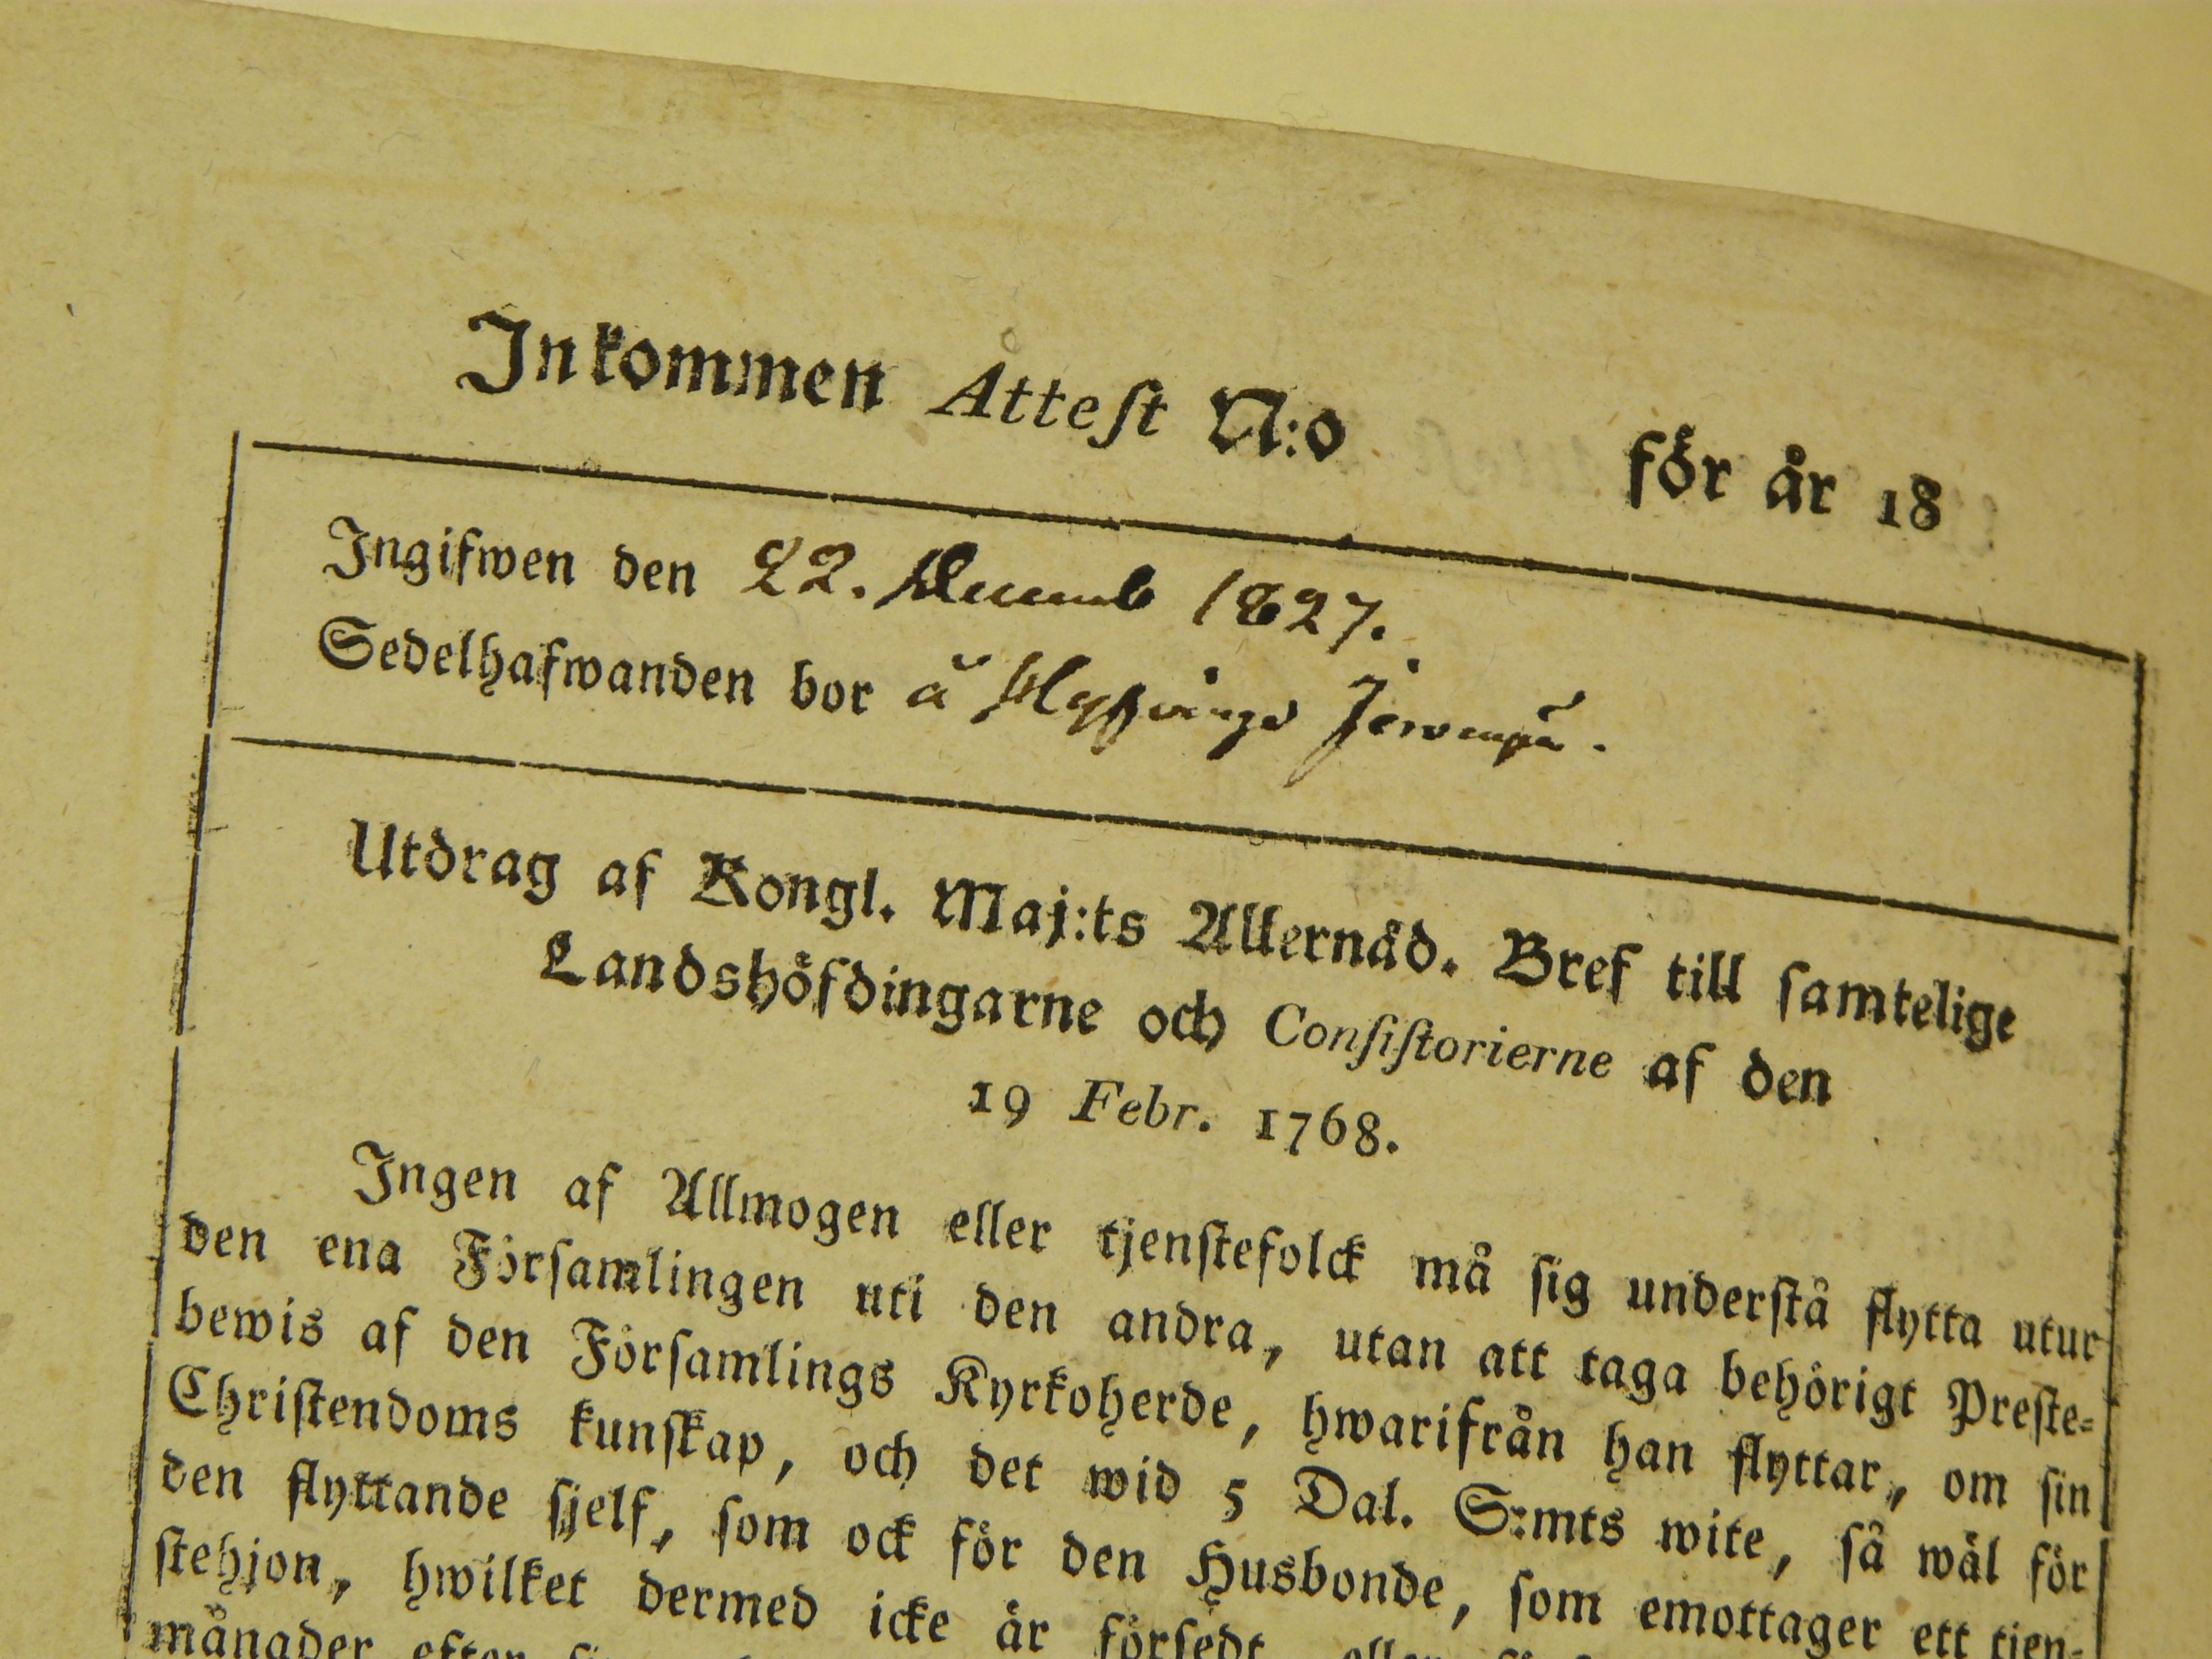 Inkommen Attest N:o för år 18
Ingifwen den 22. Decemb 1827.
Sedelhafwanden bor å
Utdrag af Kongl. Maj:ts Allernåd. Bref till samtelige
Landshöfdingarne och Consistorierne af den
19 Febr. 1768.
Ingen af Allmogen eller tjenstefolck må sig understå flytta utur
den ena Församlingen uti den andra, utan att taga behörigt Preste-
bewis af den Församlings Kyrkoherde, hwarifrån han flyttar, om sin
Christendoms kunskap, och det wid 5 Dal. S:mts wite, så wäl för
den flyttande sjelf, som ock för den Husbonde, som emottager ett tjen-
stehjon, hwilket dermed icke är försedt, eller
månader efter